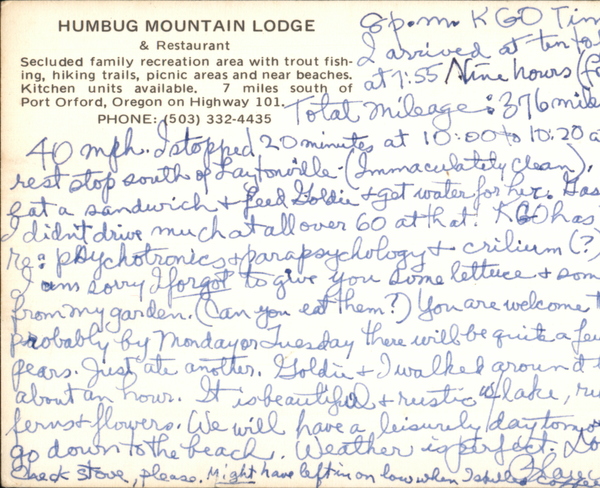 HUMBUG MOUNTAIN LODGE
& Restaurant
Secluded family recreation area with trout fish-
ing, hiking trails, picnic areas and near beaches.
Kitchen units available. 7 miles south of
Port Orford, Oregon on Highway 101.
PHONE: (503) 332-4435
8 p.m. KGO Tim
I arrived at ten to
at 7:55 Nine hours (
Total mileage: 376 mile
40 mph. I stopped 20 minutes at 10:00 to 10:20 a
rest stop south of Laytonville (Immaculately clean).
Eat a sandwich + feed Goldie + get water for her. Gas
I didn't drive much at all over 60 at that! KGO has
re: psychotronics + parapsychology + crilium (?)
I am sorry I forgot to give you some lettuce + som
from my garden. (Can you eat them?) You are welcome t
probably by Monday or Tuesday there will be quite a few
pears. Just ate another. Goldie + I walked around t
about an hour. It is beautiful + rustic w/ lake, ru
ferns + flowers. We will have a leisurely day tomo
go down to the beach. Weather is perfect. Lo
Check stove, please. Might have left in on low when I coffee